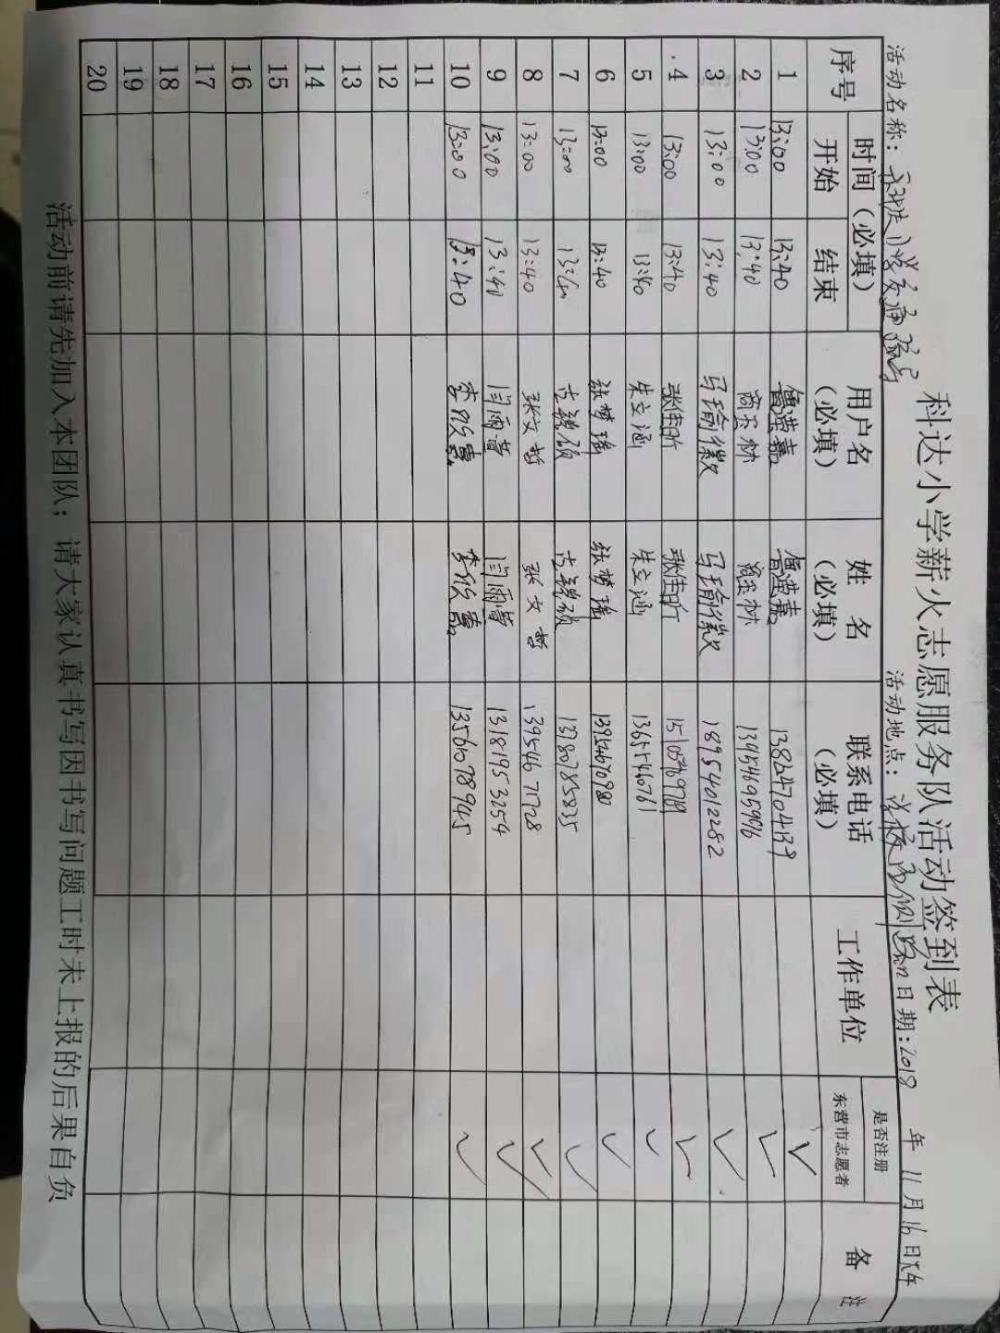 科达小学薪火志愿服务队活动签到表
活动名称： 活动地点： 日期:2018 年 11月16日
序号 时间（必填） 用户名（必填） 姓 名（必填） 联系电话（必填） 工作单位 是否注册东营市志愿者 备 注
开始 结束
1 13:00 13:40
2 13:00 13:40
3 13:00 13:40 马瑜徽 马瑜徽 18954012282
4 13:00 13:40 张佳昕 张佳昕
5 13:00 13:40 朱立涵 朱立涵 13655460761
6 13:00 13:40 张梦瑶 张梦瑶
7 13:00 13:40 13780785835
8 13:00 13:40 张文哲 张文哲 13954671728
9 13:00 13:40 13181953254
10 13:00 13:40 13561078945
11
12
13
14
15
16
17
18
19
20
活动前请先加入本团队；请大家认真书写因书写问题工时未上报的后果自负